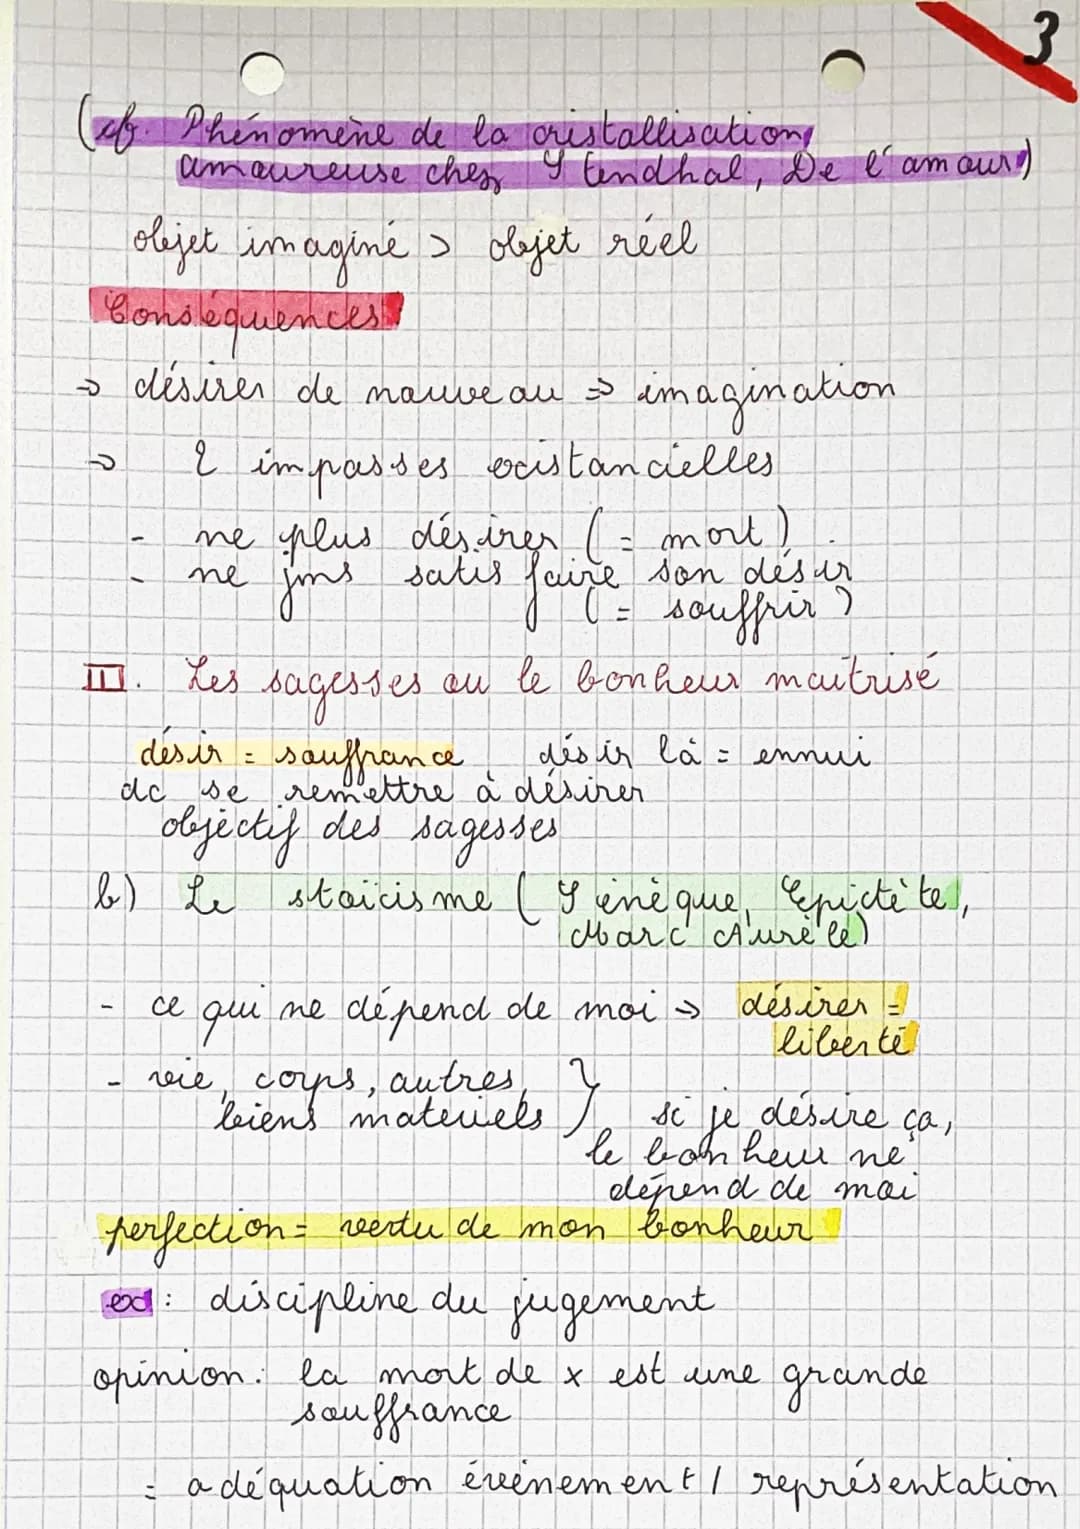 3
(cf. Phénomène de la cristallisation
amoureuse chez Stendhal, De l'amour)
objet imaginé > objet réel
Conséquences
→ désirer de nouveau ⇒ imagination
→ 2 impasses existancielles
- ne plus désirer (= mort).
- ne jms satisfaire son désir
(= souffrir)
III. Les sagesses ou le bonheur maîtrisé
désir = souffrance désir là = ennui
dc se remettre à désirer
objectif des sagesses
b) Le stoïcisme (Sénèque, Epictète,
Marc Aurèle)
- ce qui ne dépend de moi → désirer =
liberté
- vie, corps, autres, }
biens materiels } si je désire ça,
le bonheur ne
dépend de moi
perfection = vertu de mon bonheur
ex : discipline du jugement
opinion : la mort de x est une grande
souffrance
= adéquation événement / représentation